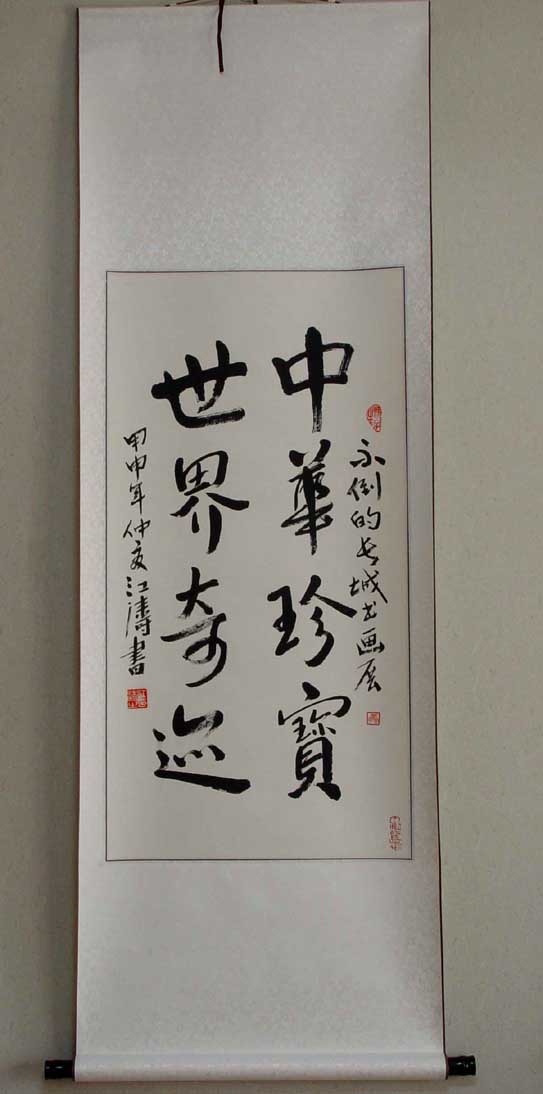 不倒的长城书画展
中華珍寶
世界奇迹
甲申年仲夏江濤書